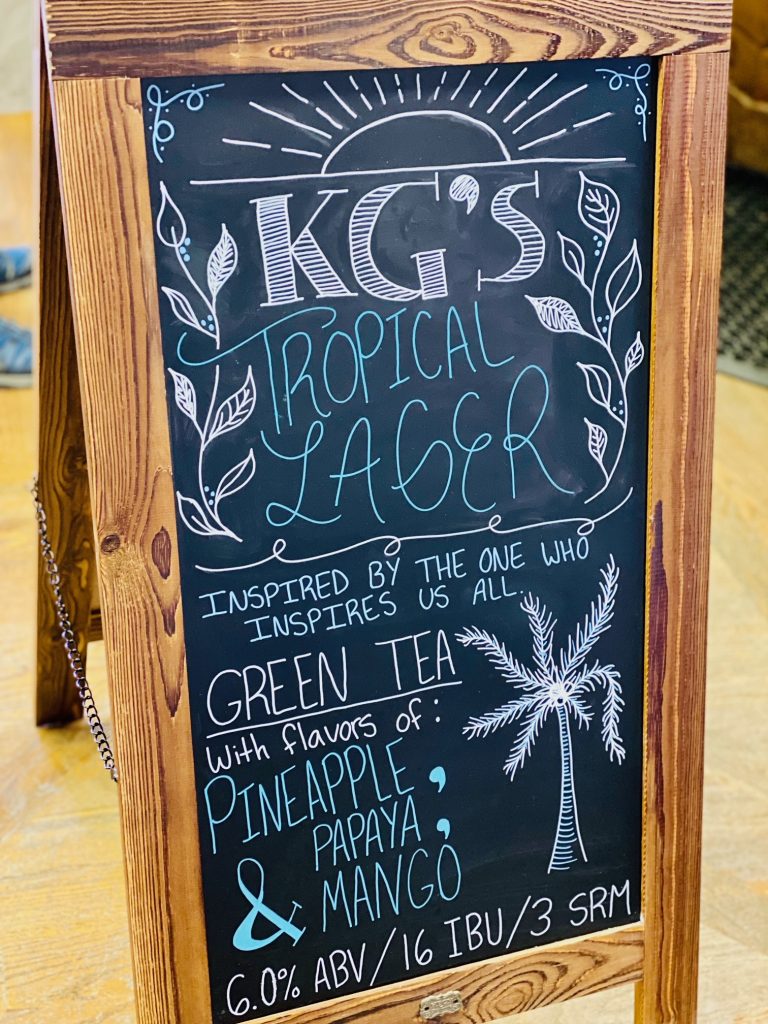 KG'S
TROPICAL
LAGER
INSPIRED BY THE ONE WHO
INSPIRES US ALL.
GREEN TEA
With flavors of:
PINEAPPLE,
PAPAYA,
& MANGO
6.0% ABV/16 IBU/3 SRM